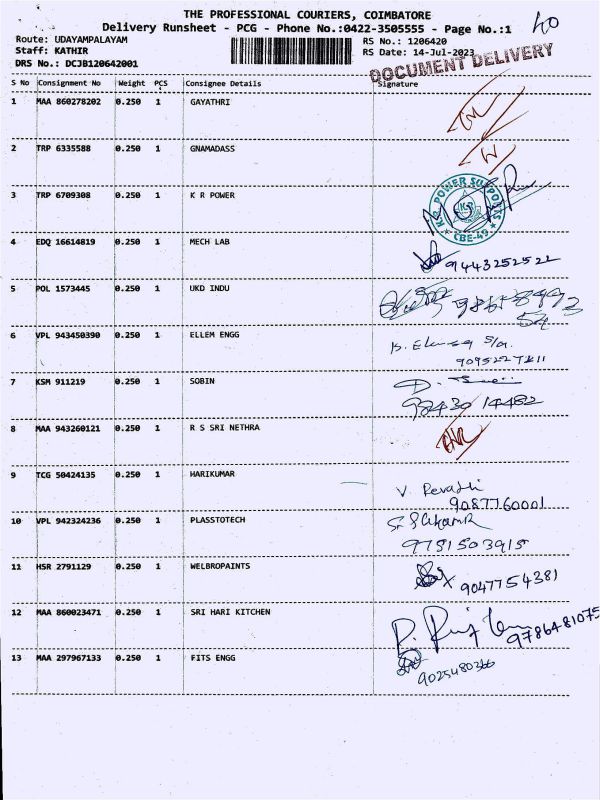 THE PROFESSIONAL COURIERS, COIMBATORE
Delivery Runsheet - PCG - Phone No.:0422-3505555 - Page No.:1
40
Route: UDAYAMPALAYAM
RS No.: 1206420
Staff: KATHIR
RS Date: 14-Jul-2023
DRS No.: DCJB120642001
DOCUMENT DELIVERY
S No Consignment No Weight PCS Consignee Details Signature
1 MAA 860278202 0.250 1 GAYATHRI
2 TRP 6335588 0.250 1 GNAMADASS
3 TRP 6709308 0.250 1 K R POWER
K.R. POWER SUPPORTS
KR
CBE-49
4 EDQ 16614819 0.250 1 MECH LAB
9443252522
5 POL 1573445 0.250 1 UKD INDU
6 VPL 943450390 0.250 1 ELLEM ENGG
7 KSM 911219 0.250 1 SOBIN
98430 14482
8 MAA 943260121 0.250 1 R S SRI NETHRA
9 TCG 50424135 0.250 1 HARIKUMAR
V. Revathi
9087760001
10 VPL 942324236 0.250 1 PLASSTOTECH
9751503915
11 HSR 2791129 0.250 1 WELBROPAINTS
9047754381
12 MAA 860023471 0.250 1 SRI HARI KITCHEN
9786481075
13 MAA 297967133 0.250 1 FITS ENGG
9025480366